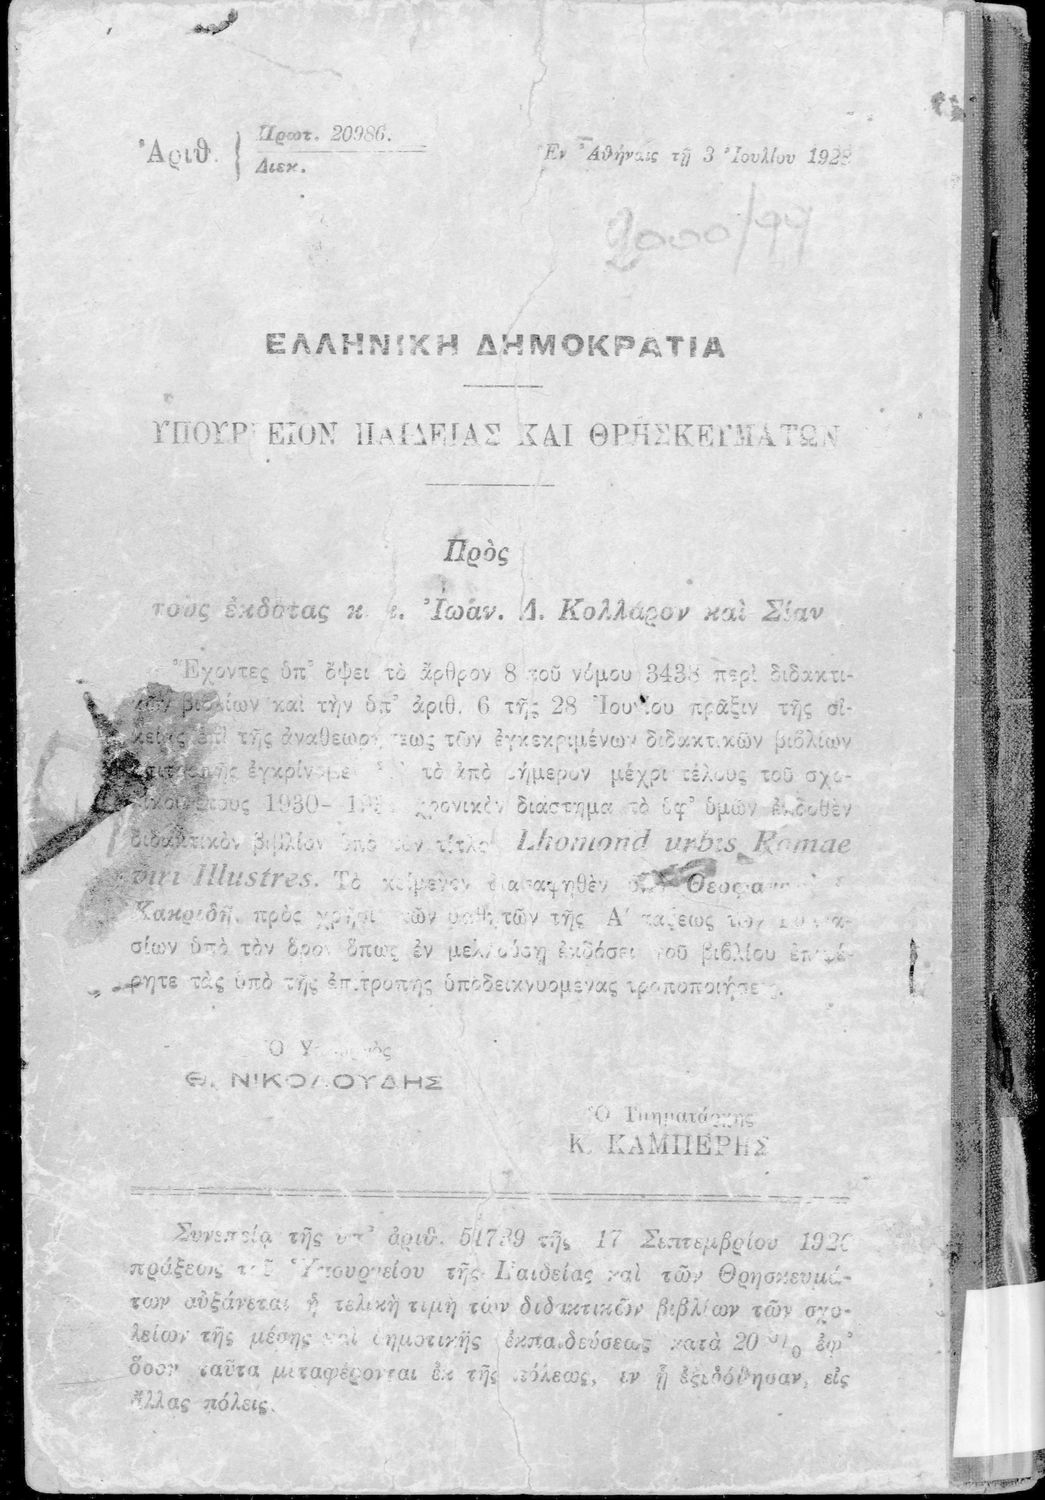 Ἀριθ. { Πρωτ. 20986.
Διεκ.
Ἐν Ἀθήναις τῇ 3 Ἰουλίου 1928
2000/99
ΕΛΛΗΝΙΚΗ ΔΗΜΟΚΡΑΤΙΑ
ΥΠΟΥΡΓΕΙΟΝ ΠΑΙΔΕΙΑΣ ΚΑΙ ΘΡΗΣΚΕΥΜΑΤΩΝ
Πρὸς
τοὺς ἐκδότας κ. κ. Ἰωάν. Δ. Κολλάρον καὶ Σίαν
Ἔχοντες ὑπ' ὄψει τὸ ἄρθρον 8 τοῦ νόμου 3438 περὶ διδακτι-
κῶν βιβλίων καὶ τὴν ὑπ' ἀριθ. 6 τῆς 28 Ἰουνίου πρᾶξιν τῆς οἰ-
κείας ἐπὶ τῆς ἀναθεωρήσεως τῶν ἐγκεκριμένων διδακτικῶν βιβλίων
ἐπιτροπῆς ἐγκρίνομεν τὸ ἀπὸ σήμερον μέχρι τέλους τοῦ σχο-
λικοῦ ἔτους 1930- χρονικὸν διάστημα τὸ ὑφ' ὑμῶν ἐκδοθὲν
διδακτικὸν βιβλίον ὑπὸ τὸν τίτλον Lhomond urbis Romae
viri Illustres. Τὸ κείμενον διασαφηθὲν ὑπὸ Θεοφαν
Κακριδῆ, πρὸς χρῆσιν τῶν μαθητῶν τῆς Α' τάξεως τῶν Γυμνα-
σίων ὑπὸ τὸν ὅρον ὅπως ἐν μελλούσῃ ἐκδόσει τοῦ βιβλίου ἐπιφέ-
ρητε τὰς ὑπὸ τῆς ἐπιτροπῆς ὑποδεικνυομένας τροποποιήσεις.
Ὁ Ὑπουργὸς
Θ. ΝΙΚΟΛΟΥΔΗΣ
Ὁ Τμηματάρχης
Κ. ΚΑΜΠΕΡΗΣ
Συνεπείᾳ τῆς ὑπ' ἀριθ. 54739 τῆς 17 Σεπτεμβρίου 1920
πράξεως τοῦ Ὑπουργείου τῆς Παιδείας καὶ τῶν Θρησκευμά-
των αὐξάνεται ἡ τελικὴ τιμὴ τῶν διδακτικῶν βιβλίων τῶν σχο-
λείων τῆς μέσης καὶ δημοτικῆς ἐκπαιδεύσεως κατὰ 20 % ἐφ'
ὅσον ταῦτα μεταφέρονται ἐκ τῆς πόλεως, ἐν ᾗ ἐξεδόθησαν, εἰς
ἄλλας πόλεις.